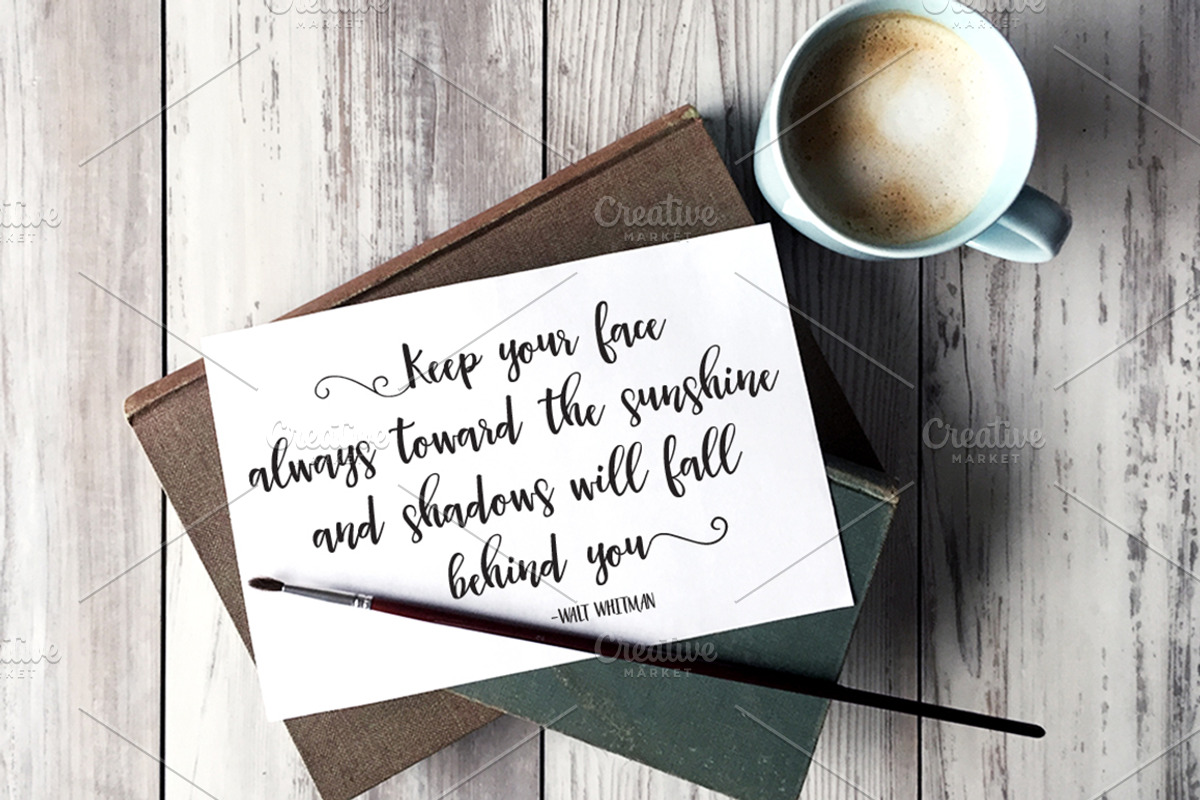 Creative
MARKET
Creative
MARKET
Creative
MARKET
Creative
MARKET
Keep your face
always toward the sunshine
and shadows will fall
behind you
-WALT WHITMAN
Creative
MARKET
Creative
MARKET
Creative
MARKET